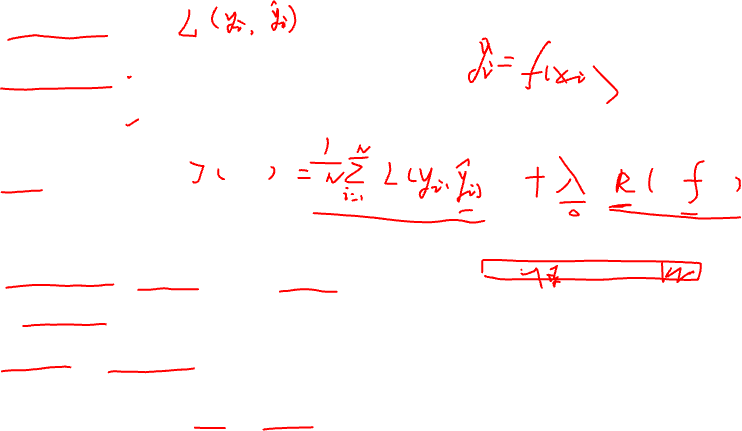 L(yᵢ, ŷᵢ)
ŷᵢ = f(xᵢ)
J( ) = 1/N ∑ᵢ₌₁ᴺ L(yᵢ, ŷᵢ) + λ R(f)